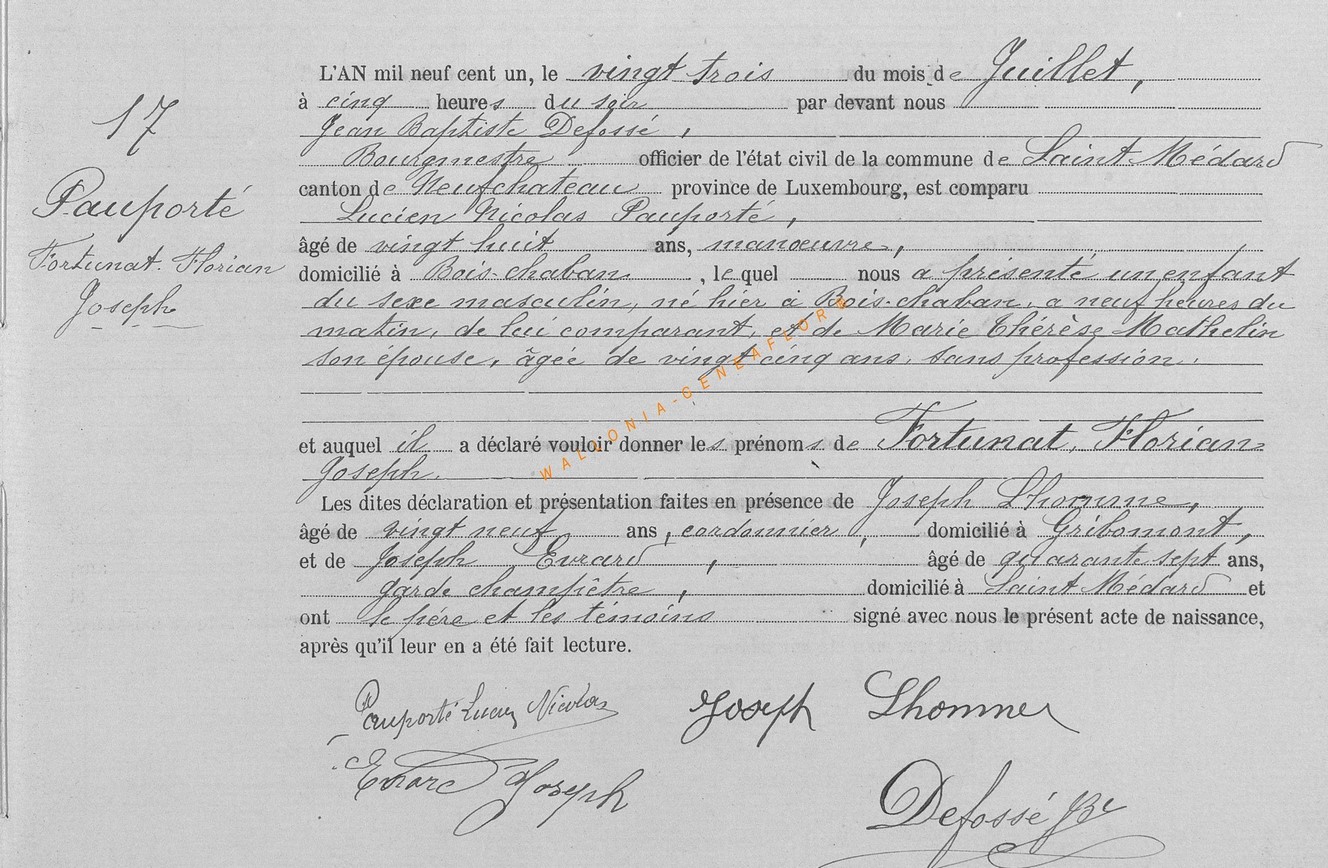 17
Pauporté
Fortunat. Florian
Joseph
L'AN mil neuf cent un, le vingt trois du mois de Juillet,
à cinq heures du soir par devant nous
Jean Baptiste Defossé,
Bourgmestre officier de l'état civil de la commune de Saint Médard
canton de Neufchateau province de Luxembourg, est comparu
Lucien Nicolas Pauporté,
âgé de vingt huit ans, manœuvre,
domicilié à Bois-chaban, lequel nous a présenté un enfant
du sexe masculin, né hier à Bois-chaban, a neuf heures du
matin, de lui comparant, et de Marie Thérèse Mathelin
son épouse, âgée de vingt cinq ans, sans profession.
et auquel il a déclaré vouloir donner les prénoms de Fortunat, Florian-
Joseph.
Les dites déclaration et présentation faites en présence de Joseph Lhomme,
âgé de vingt neuf ans, cordonnier, domicilié à Gribomont,
et de Joseph Evrard, âgé de quarante sept ans,
garde champêtre, domicilié à Saint Médard et
ont le père et les témoins signé avec nous le présent acte de naissance,
après qu'il leur en a été fait lecture.
Pauporté Lucien Nicolas Joseph Lhomme
Evrard Joseph
Defossé JBte
WALLONIA-GENEAFLORE